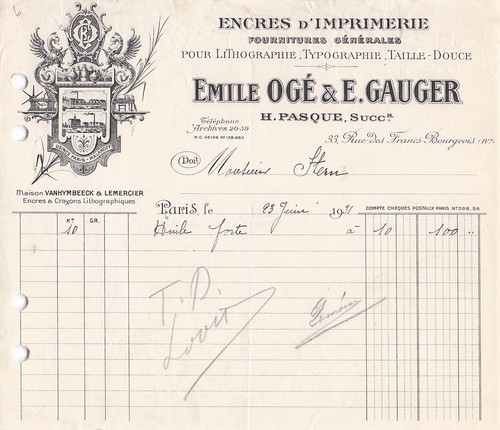 ENCRES D'IMPRIMERIE
FOURNITURES GÉNÉRALES
POUR LITHOGRAPHIE, TYPOGRAPHIE, TAILLE-DOUCE
EMILE OGÉ & E. GAUGER
H. PASQUE, SUCC.R
Téléphone
Archives 20-59
33, Rue des Francs-Bourgeois (IVe)
Doit Monsieur Stern
Maison VANHYMBEECK & LEMERCIER
Encres & Crayons Lithographiques
Paris, le 23 Juin 1931
COMPTE CHÈQUES POSTAUX PARIS N° 398.58
KOS GR.
10 Huile forte à 10 100 "